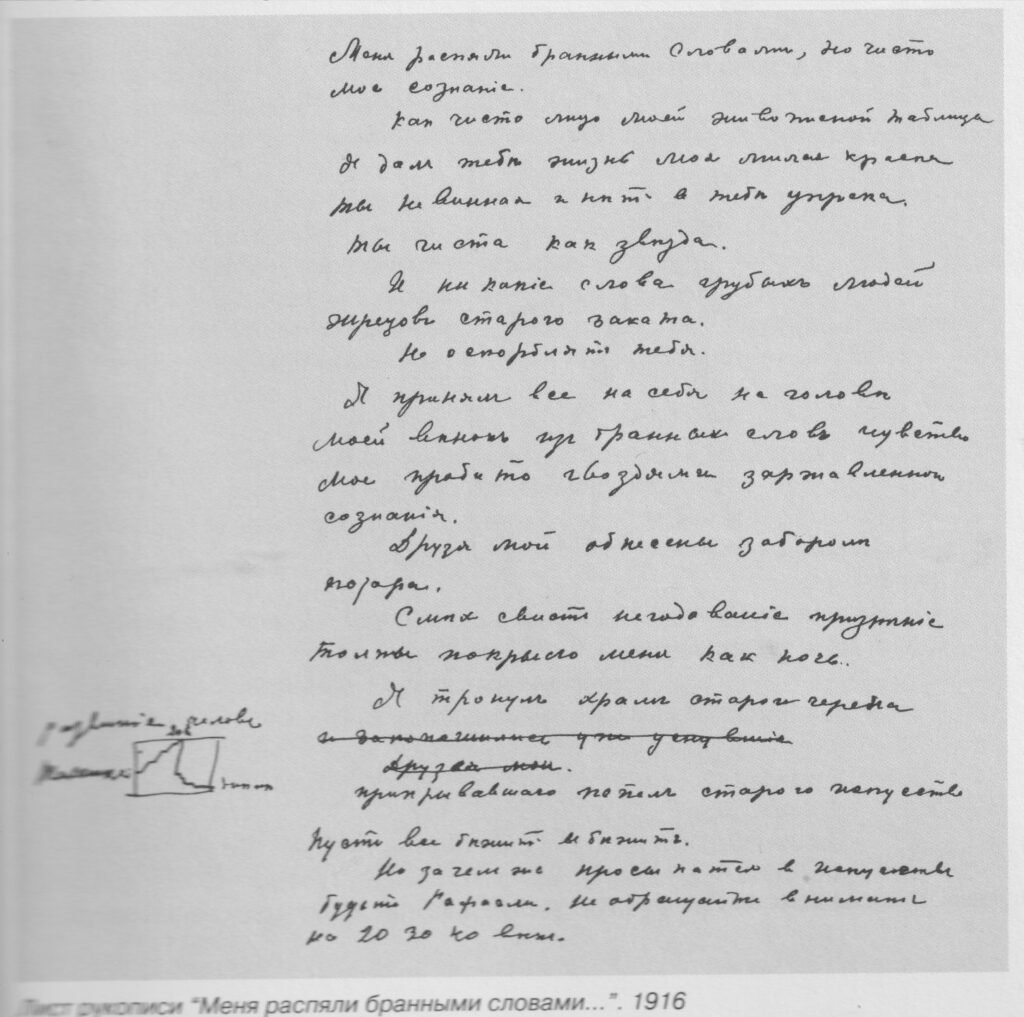 Меня распяли бранными словами, но чисто
мое сознаніе.
Как чисто лицо моей живописной таблицы
Я дал тебѣ жизнь моя милая краска
ты невинная и нѣт в тебѣ упрека.
ты чиста как звѣзда.
И никакіе слова грубых людей
жрецовъ старого заката.
Не оскорблятъ тебя.
Я принял все на себя на голову
моей вѣнокъ из бранных словъ чувство
мое пробито гвоздями заржавленного
сознанія.
Друзя мой обнесены забором
позора.
Смѣх свистъ негодованіе призрѣніе
толпы покрыло меня как ночь.
Я тронул храм старого черепа
развитіе человѣ
и закопошились уже уснувшіе
Друзья мои.
прикрывавшаго пепел старого искусства
Пусть все бѣжитъ и бѣжитъ.
Но зачем же просыпатся в искусствѣ
будьте Рафаэли, не обращайте внимать
на 20 30 40 вѣк.
Лист рукописи "Меня распяли бранными словами...". 1916